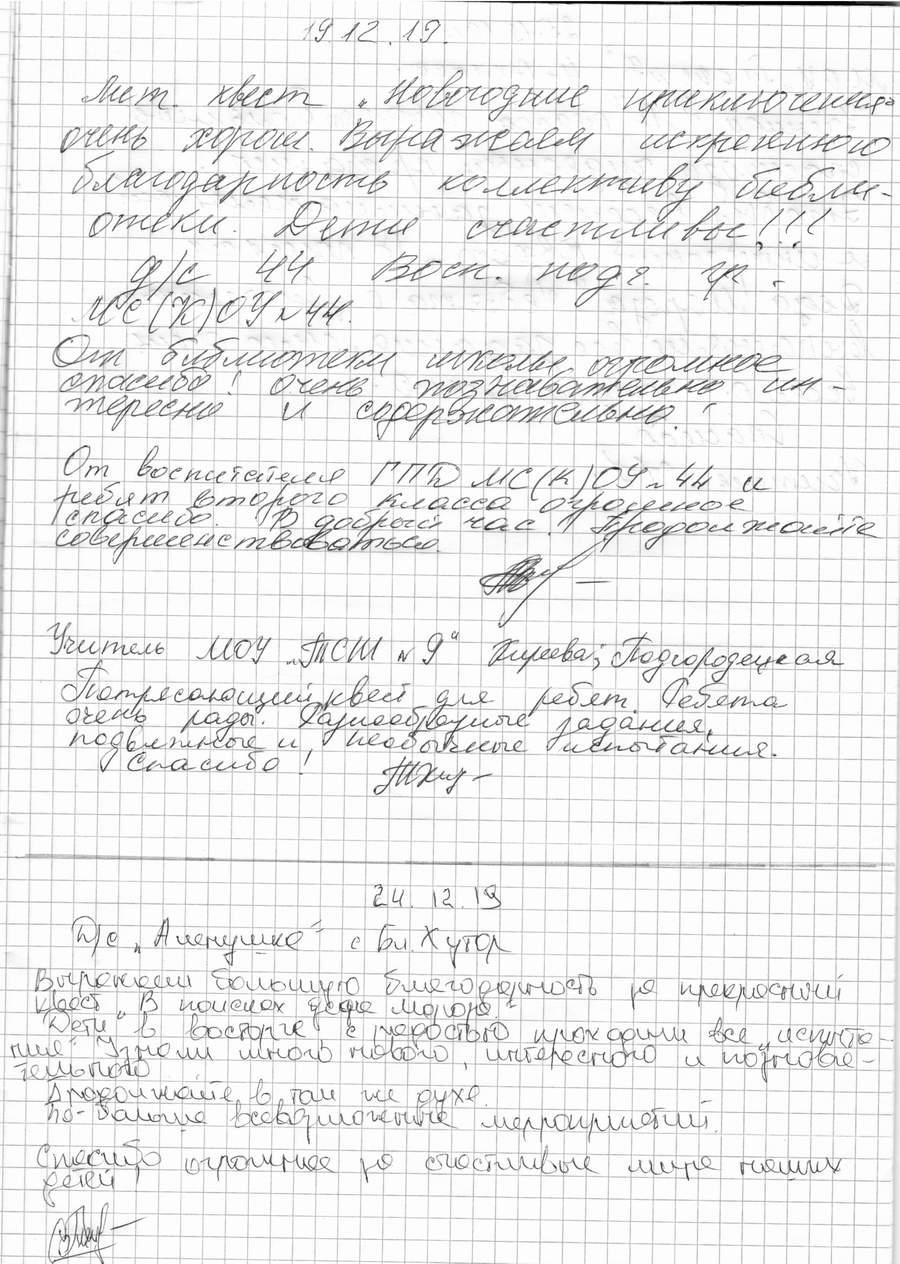 19.12.19.
Мет. квест „Новогодние приключения"
очень хорош. Выражаем искреннюю
благодарность коллективу библи-
отеки. Дети счастливы!!!
д/с 44 Восп. подг. гр.
МС(К)ОУ №44.
От библиотеки школы огромное
спасибо! очень познавательно ин-
тересно и содержательно!
От воспитателя ГПД МС(К)ОУ №44 и
ребят второго класса огромное
спасибо. В добрый час! Продолжайте
совершенствоваться.
Учитель МОУ „ТСШ №9" Киреева; Подгородецкая
Потрясающий квест для ребят. Ребята
очень рады. Разнообразные задания,
подвижные и необычные испытания.
Спасибо!
24.12.19
Д/с „Аленушка" с Бл. Хутор
Выражаем большую благодарность за прекрасный
квест „В поисках деда мороза."
Дети в восторге с радостью проходили все „испыта-
ния" Узнали много нового, интересного и познава-
тельного
Продолжайте в том же духе.
По-больше всевозможных мерроприятий.
Спасибо огромное за счастливые лица наших
детей